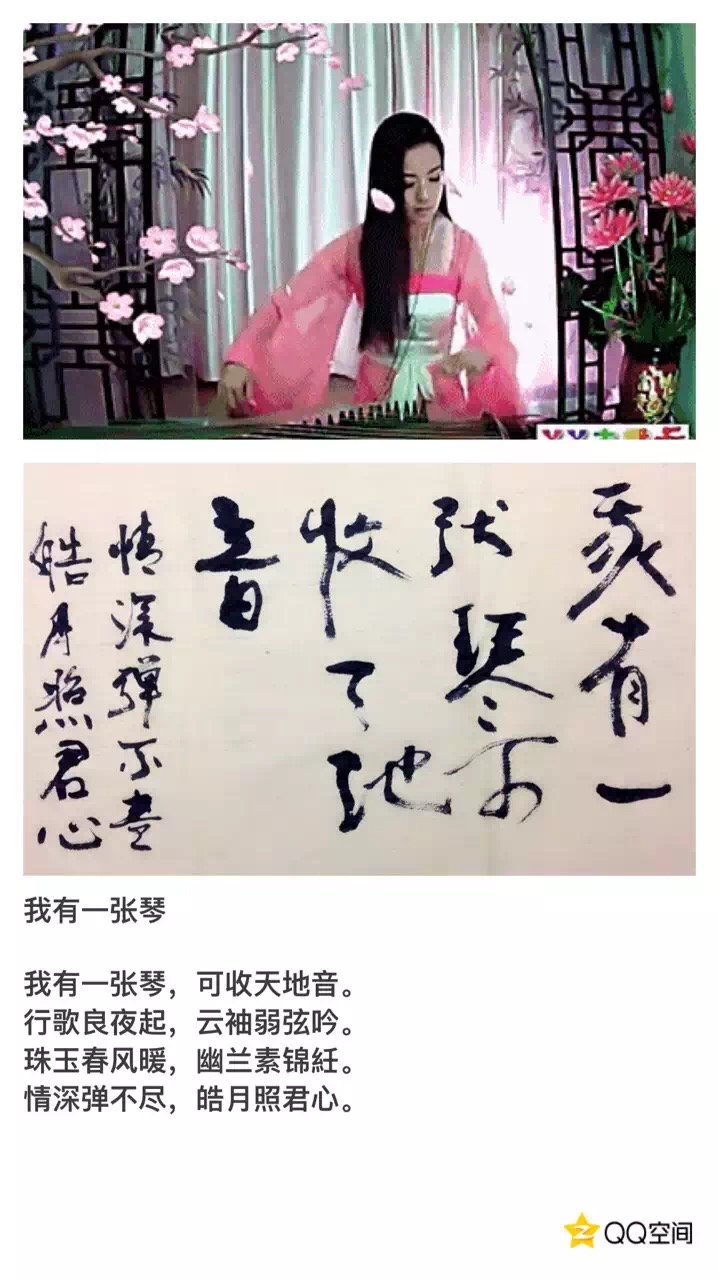 我有一
张琴可
收天地
音
情深彈不盡
皓月照君心
我有一张琴
我有一张琴，可收天地音。
行歌良夜起，云袖弱弦吟。
珠玉春风暖，幽兰素锦紝。
情深弹不尽，皓月照君心。
QQ空间